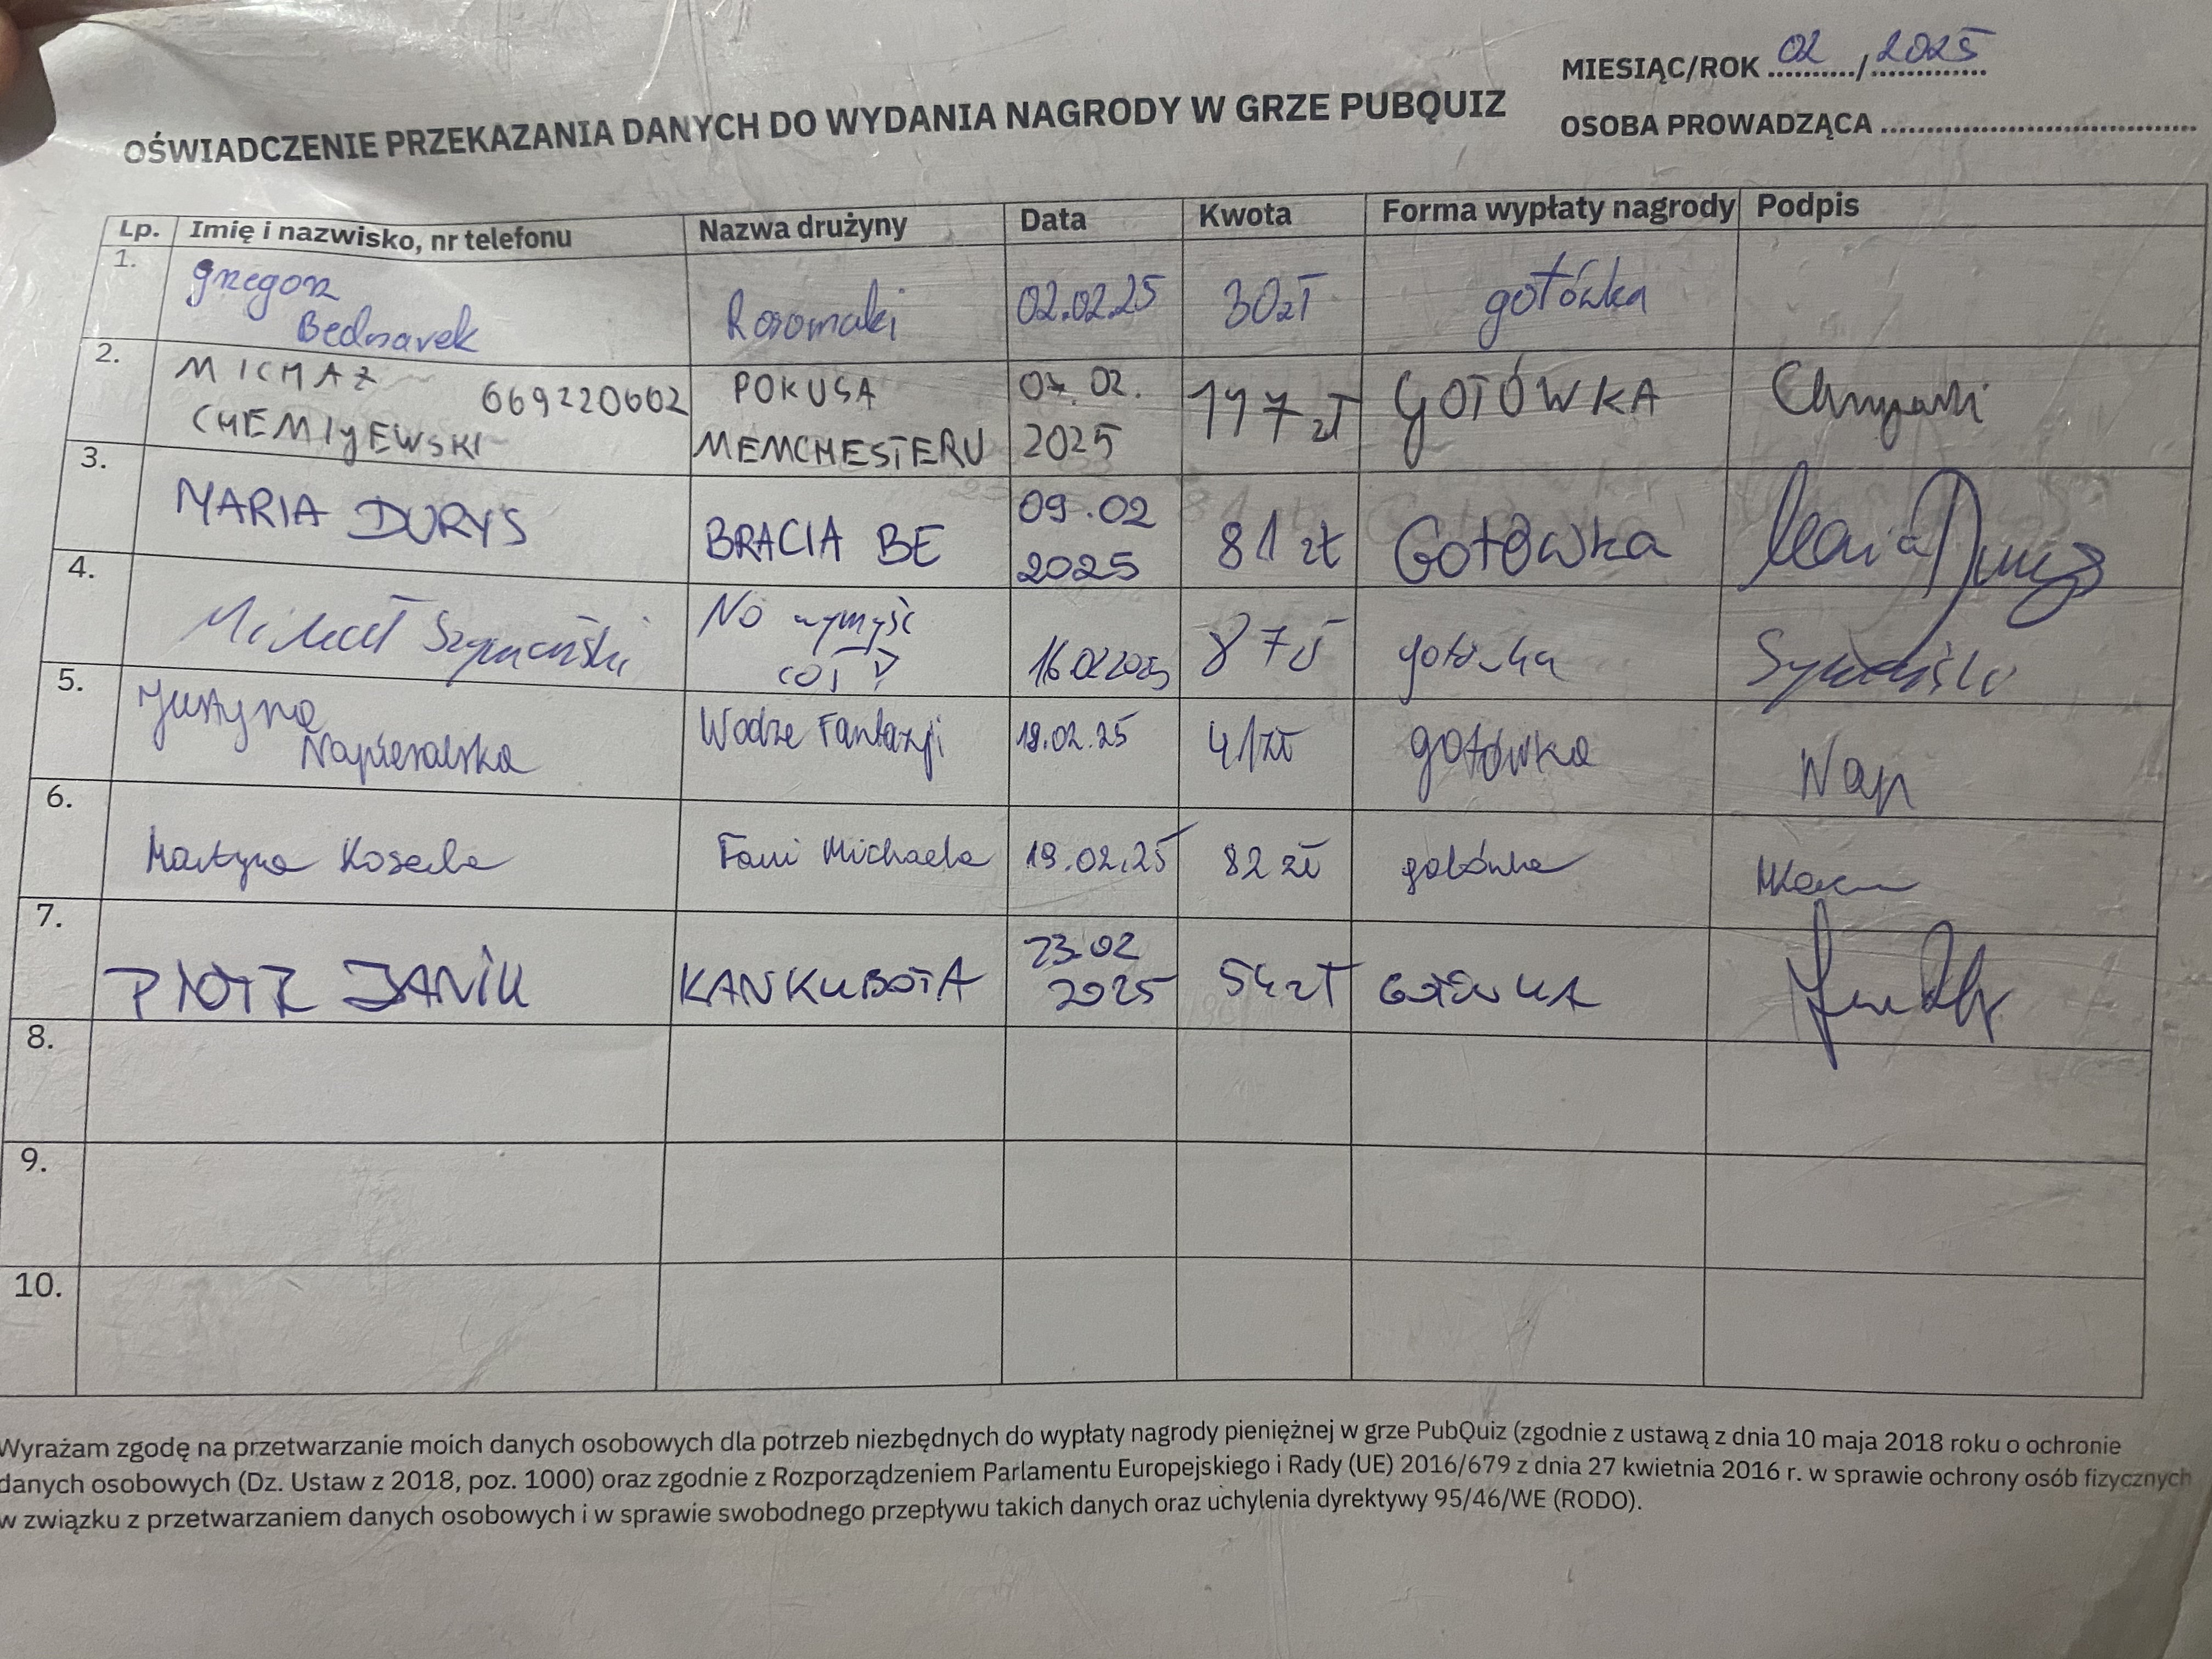 MIESIĄC/ROK 02 / 2025
OŚWIADCZENIE PRZEKAZANIA DANYCH DO WYDANIA NAGRODY W GRZE PUBQUIZ
OSOBA PROWADZĄCA
Lp. Imię i nazwisko, nr telefonu Nazwa drużyny Data Kwota Forma wypłaty nagrody Podpis
1. Grzegorz Bednarek Rosomaki 02.02.25 30zł gotówka
2. MICHAŁ 669220602 POKUSA 02. 117 zł GOTÓWKA
MEMCHESTERU 2025
3. MARIA DURYS BRACIA BE 09.02 2025 81 zł Gotówka Maria Durys
4. Michał Szymański No wymyśl coś 16.02.2025 gotówka
5. Justyna Napieralska Wodze Fantazji 19.02.25 41zł gotówka Nap
6. Martyna Fani Michaela 19.02.25 82 zł gotówka
7. PIOTR JANIK KANKUBOTA 23.02 2025 54zł GOTÓWKA
8.
9.
10.
Wyrażam zgodę na przetwarzanie moich danych osobowych dla potrzeb niezbędnych do wypłaty nagrody pieniężnej w grze PubQuiz (zgodnie z ustawą z dnia 10 maja 2018 roku o ochronie
danych osobowych (Dz. Ustaw z 2018, poz. 1000) oraz zgodnie z Rozporządzeniem Parlamentu Europejskiego i Rady (UE) 2016/679 z dnia 27 kwietnia 2016 r. w sprawie ochrony osób fizycznych
w związku z przetwarzaniem danych osobowych i w sprawie swobodnego przepływu takich danych oraz uchylenia dyrektywy 95/46/WE (RODO).